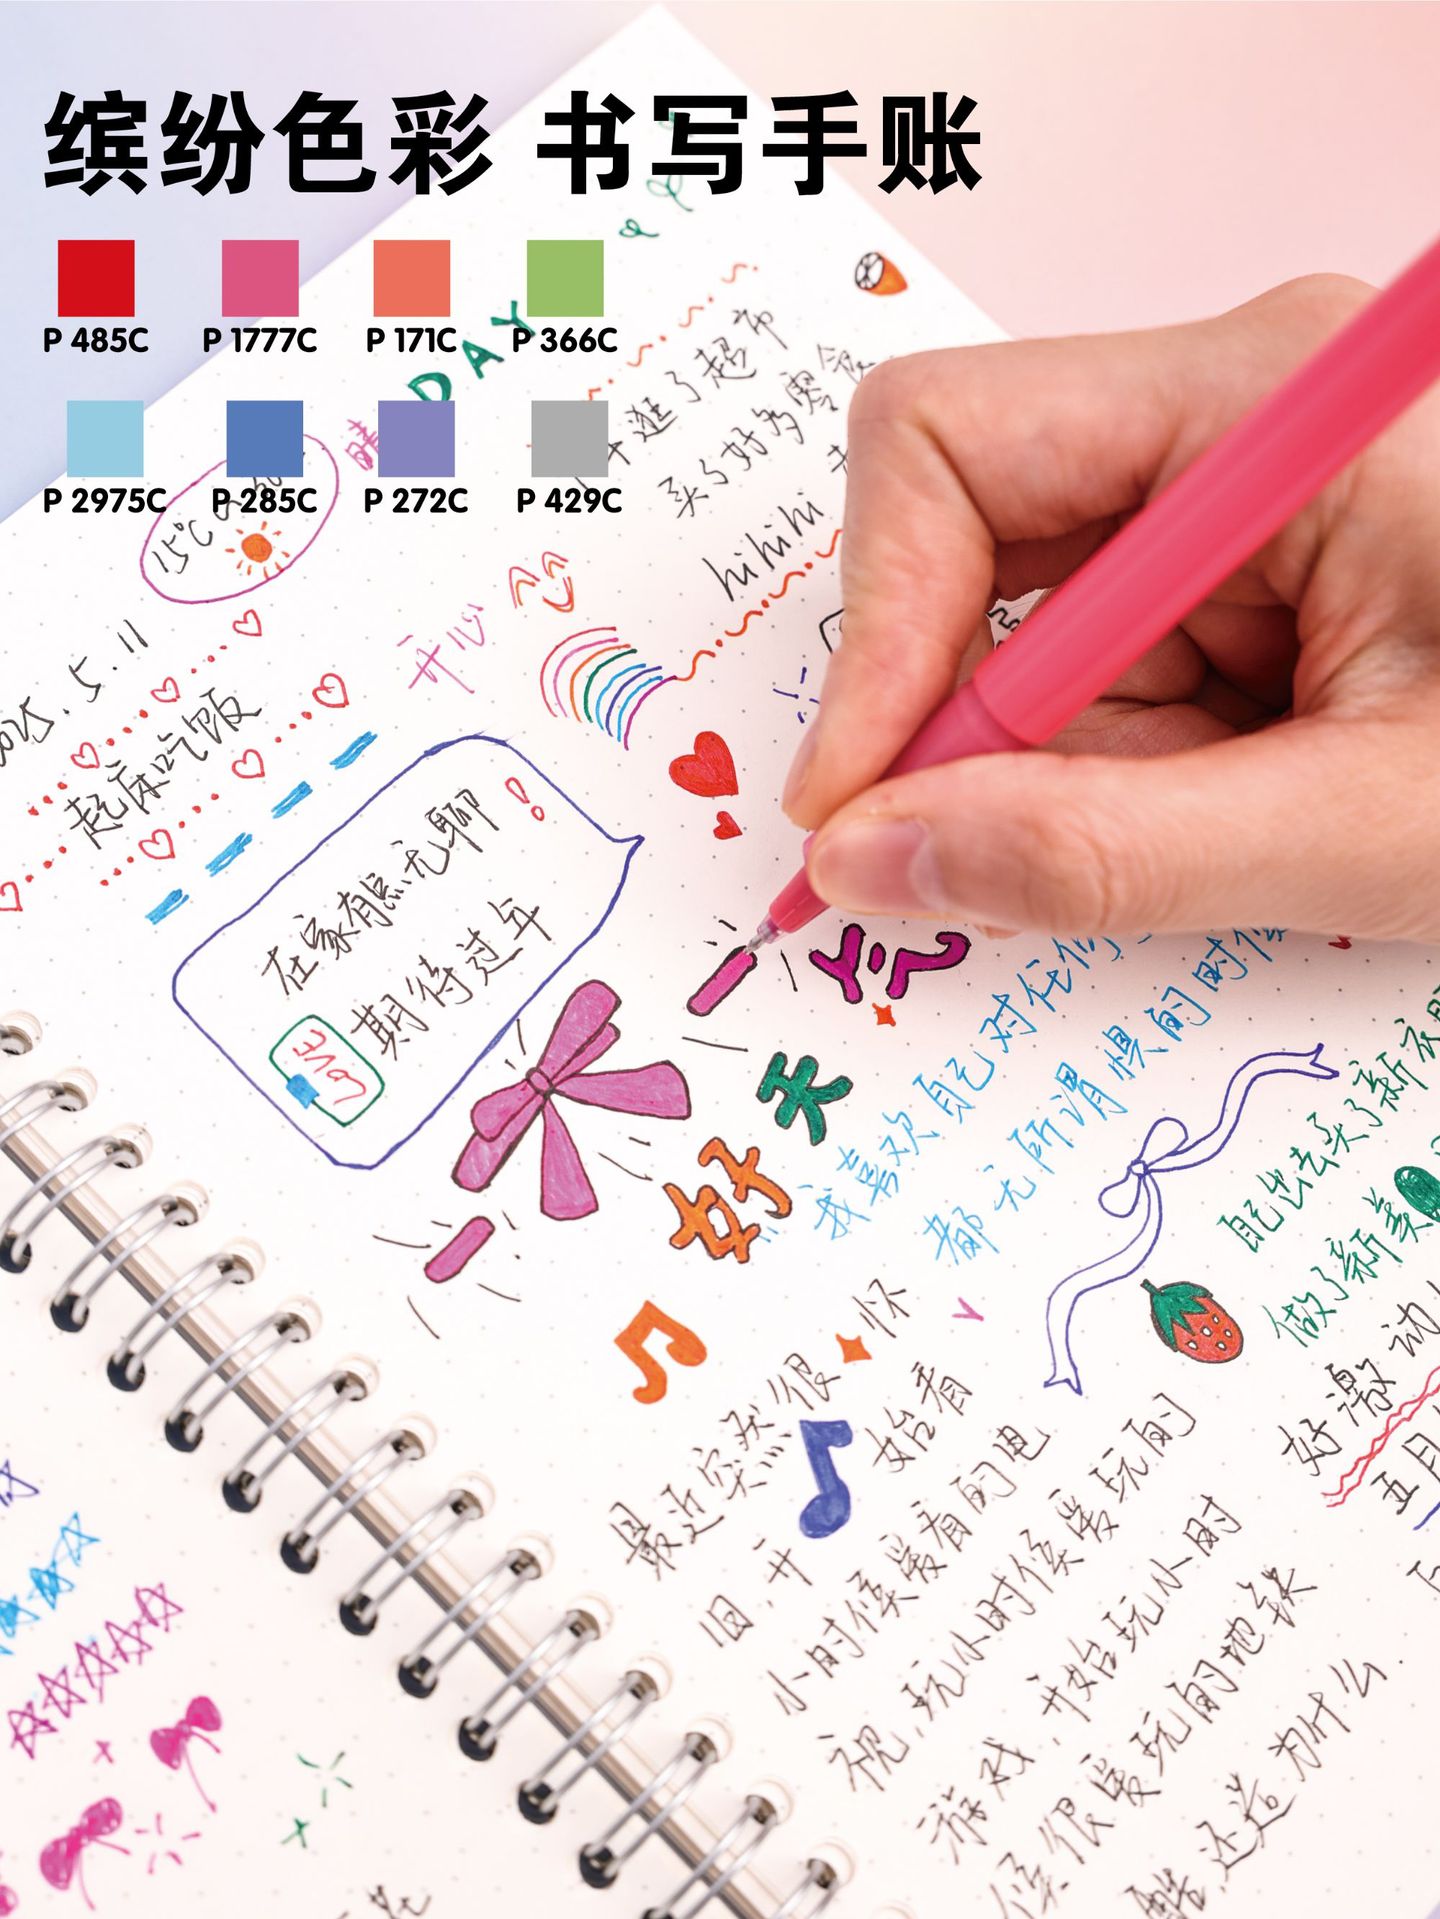 缤纷色彩 书写手账
P 485C P 1777C P 171C P 366C
P 2975C P 285C P 272C P 429C
DAY
晴
15°C
逛了超市
买了好多零食
hihihi
开心
2025.5.11
起床吃饭
在家有点无聊!
期待过年
LOVE
好天气
我喜欢自己对任何
都无所谓惧的时候
自己出去买了新衣服
做了新美
好激动
五月
最近突然很怀
旧,开始看
小时候爱看的电
视,玩小时候爱玩的
游戏,开始玩小时
候很爱玩的地铁
酷,还造为什么